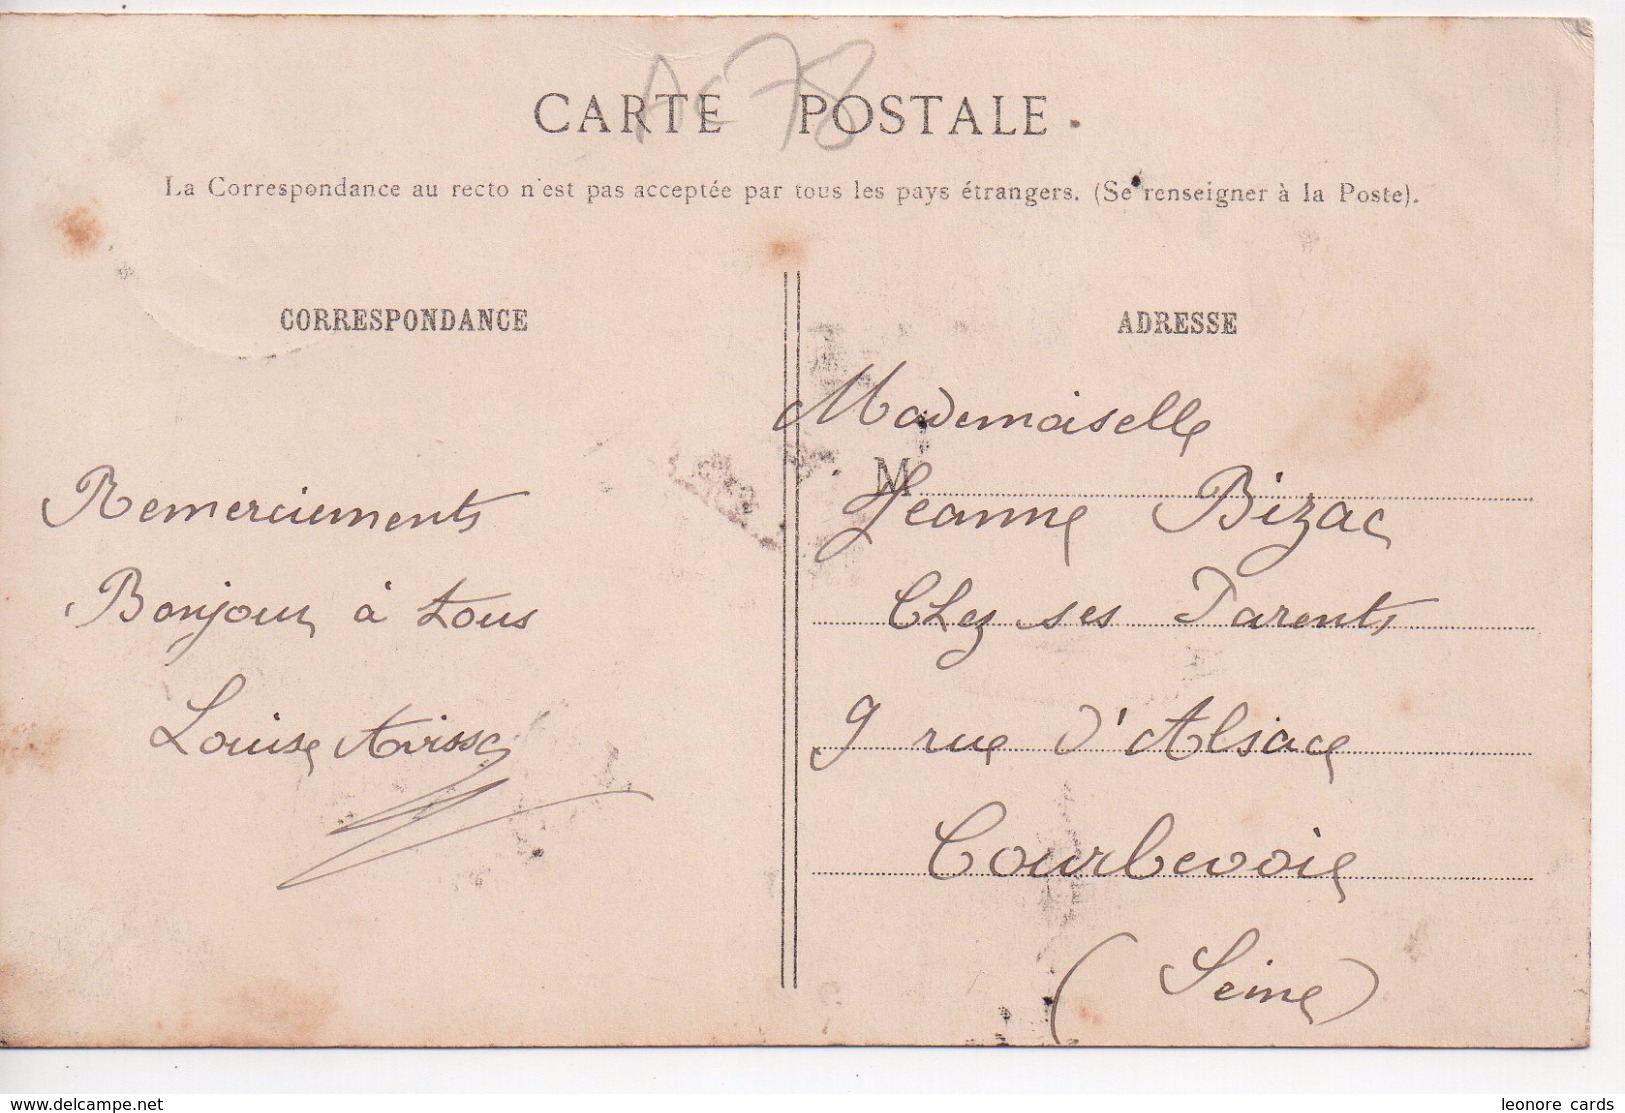 CARTE POSTALE
Ac 78
La Correspondance au recto n'est pas acceptée par tous les pays étrangers. (Se renseigner à la Poste).
CORRESPONDANCE
Remerciements
Bonjour à tous
Louise
ADRESSE
Mademoiselle
M
Jeanne Bizac
Chez ses Parents
9 rue d'Alsace
Courbevoie
(Seine)
www.delcampe.net
leonore cards